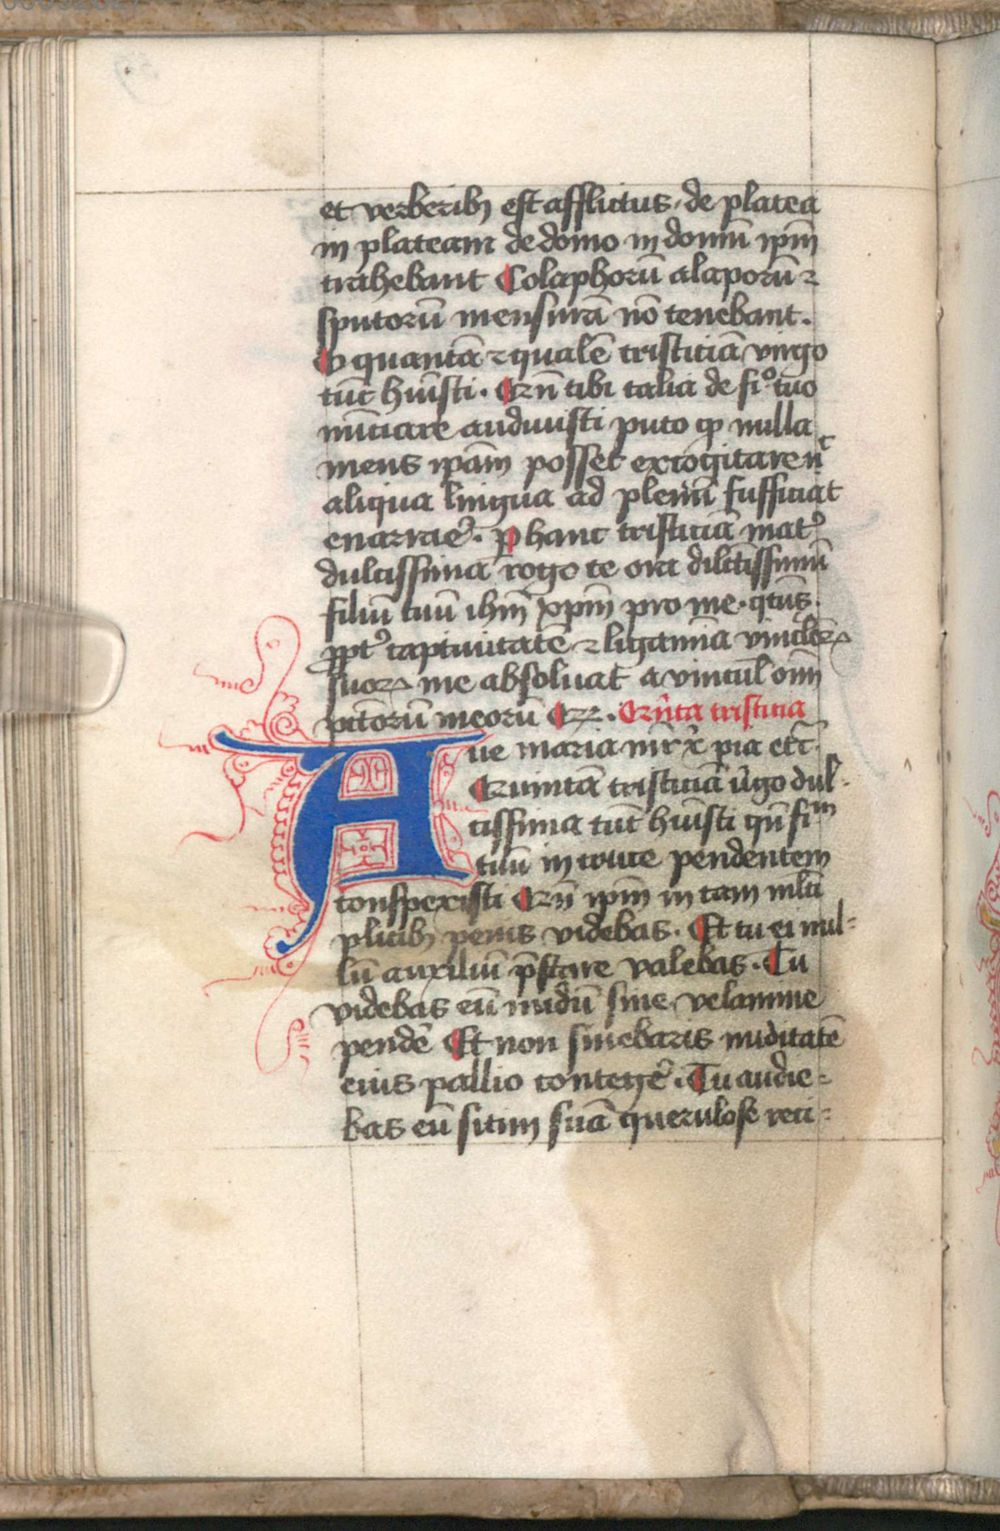 et verberibꝫ est afflictus, de platea
in plateam de domo in domū ipm̄
trahebant Colaphorū alaporū ⁊
sputorū mensurā nō tenebant.
O quantā ⁊ qualē tristiciā virgo
tūc huīsti. Qn̄ tibi talia de fiº tuo
nūciare audivisti puto ꝙ nulla
mens ipām posset excogitare nͨ
aliqua lingua ad plenū sufficiat
enarrar̉. ꝓ hanc tristiciā mat̉
dulcissima rogo te ora dilc̄tissimū
filiū tuū ihm̄ xp̄m pro me. qt̄us
ꝓpt̉ captivitatē ⁊ ligamīa vincl̄oꝝ
suoꝝ me absolvat a vincul̄ om̄
pc̄torū meorū
ve maria mr̄ x̄ pia etc̄.
Quintā tristiciā v̉go dul-
cissima tūc huīsti qn̄ fiᵐ
tuū in cruce pendentem
conspexisti Qn̄ ipm̄ in tam ml̄ti
plicibꝫ penis videbas. Et tu ei nul=
lū auxiliū p̄stare valebas. Tu
videbas eū nudū sine velamine
pendē Et non sinebaris nuditatē
eius pallio conteger̉. Tu audie=
bas eū sitim suā querulose reci=